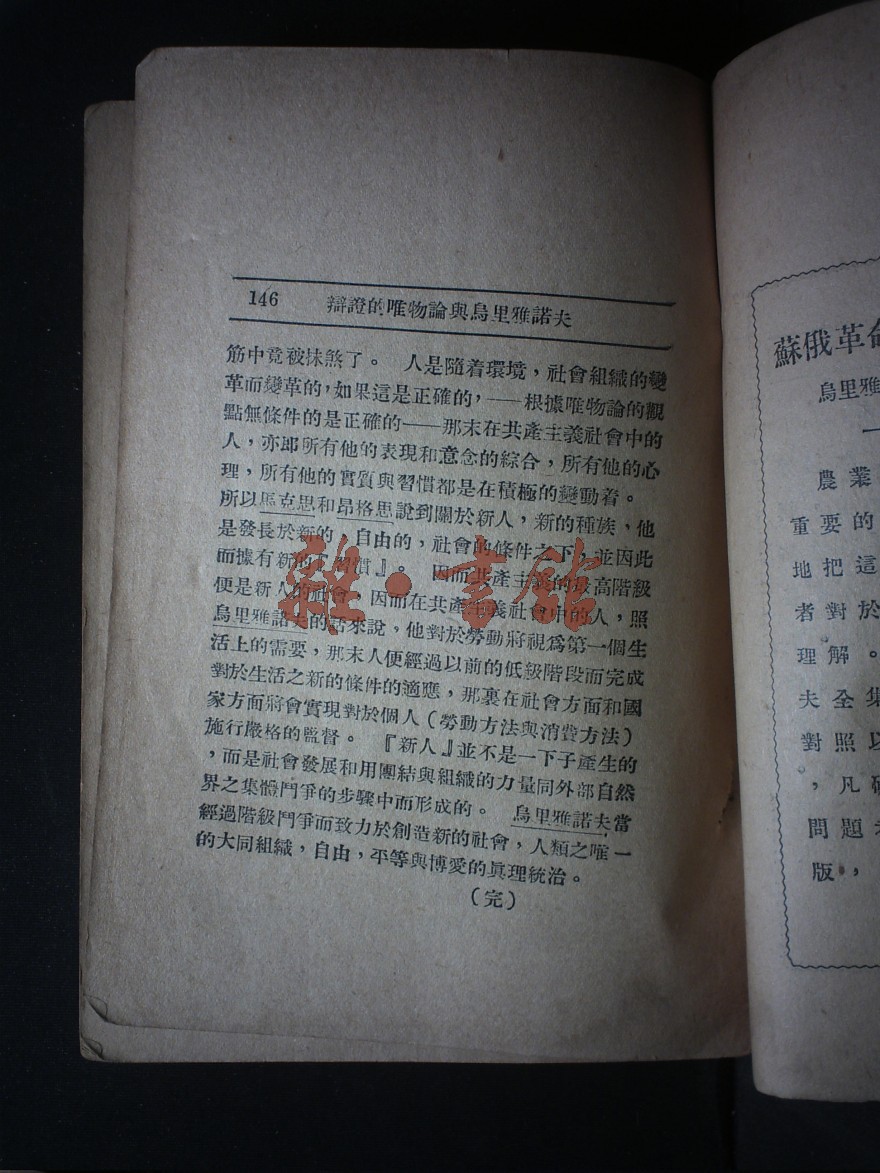 146 辯證的唯物論與烏里雅諾夫
筋中竟被抹煞了。 人是隨着環境，社會組織的變
革而變革的，如果這是正確的，——根據唯物論的觀
點無條件的是正確的——那末在共產主義社會中的
人，亦即所有他的表現和意念的綜合，所有他的心
理，所有他的實質與習慣都是在積極的變動着。
所以馬克思和昂格思說到關於新人，新的種族，他
是發長於新的，自由的，社會的條件之下，並因此
而據有新的『習慣』。 因而共產主義的最高階級
便是新人的社會。因而在共產主義社會中的人，照
烏里雅諾夫的話來說，他對於勞動將視爲第一個生
活上的需要，那末人便經過以前的低級階段而完成
對於生活之新的條件的適應，那裏在社會方面和國
家方面將會實現對於個人（勞動方法與消費方法）
施行嚴格的監督。 『新人』並不是一下子產生的
，而是社會發展和用團結與組織的力量同外部自然
界之集體鬥爭的步驟中而形成的。 烏里雅諾夫當
經過階級鬥爭而致力於創造新的社會，人類之唯一
的大同組織，自由，平等與博愛的眞理統治。
（完）
雜·書館
蘇俄革命
烏里雅
農業
重要的
地把這
者對於
理解。
夫全集
對照以
，凡研
問題
版，